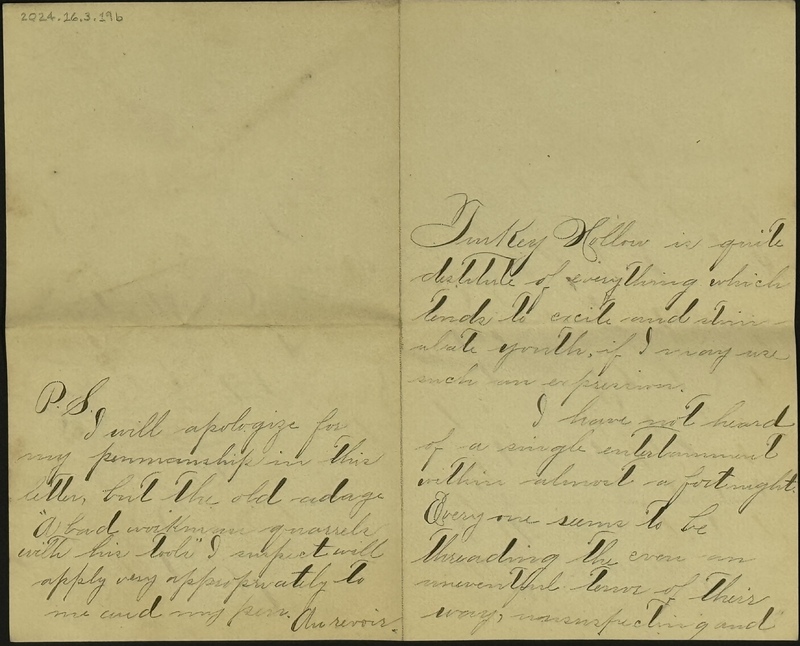 2024.16.3.19b
P.S.
I will apologize for
my penmanship in this
letter, but the old adage
"A bad workman quarrels
with his tools" I suspect will
apply very appropriately to
me and my pen. Au revoir.
Turkey Hollow is quite
destitute of everything which
tends to excite and stim-
ulate youth, if I may use
such an expression.
I have not heard
of a single entertainment
within almost a fortnight.
Every one seems to be
threading the even an
uneventful tenor of their
way, unsuspecting and